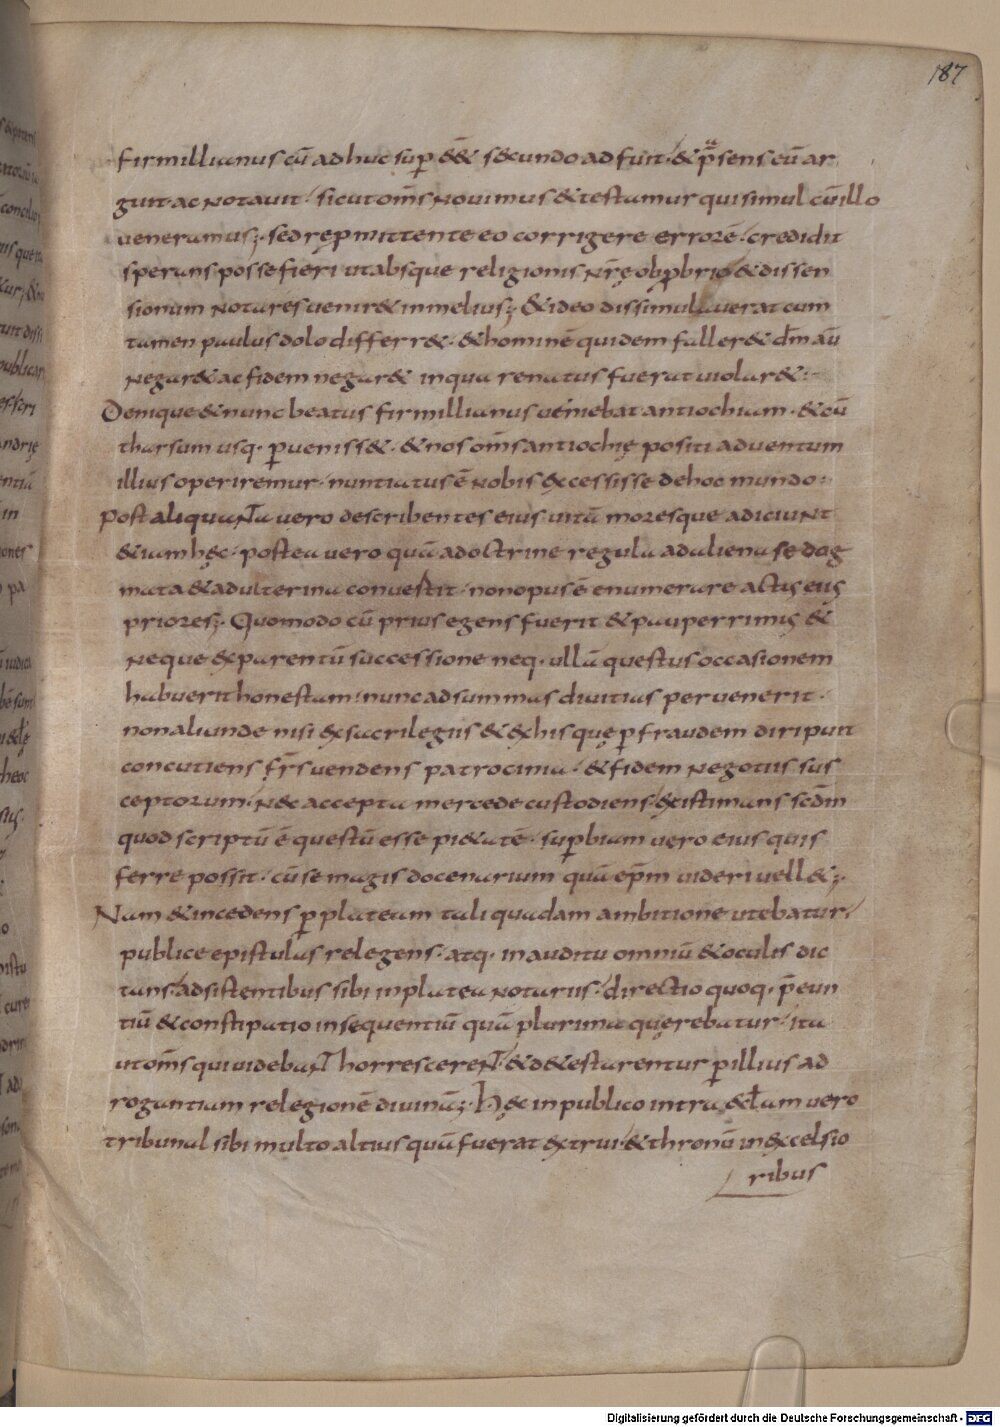 187
firmillianus cū adhuc sup̄ eēt secundo adfuit. & p̄sens eū ar
guit ac notauit. sicut om̄s nouimus & testamur qui simul cū illo
ueneramus; sed rep mittente eo corrigere errore. credidit
sperans posse fieri ut absque religionis nr̄ę obprbrio & dissen
sionum notares uenir& in melius; & ideo dissimulauerat cum
tamen paulus dolo differr&. & hominē quidem faller& dm̄ aū
negar& ac fidem negar& in qua renatus fuerat uiolar&:
Denique & nunc beatus firmillianus ueniebat antiochiam. & cū
tharsum usq. ꝑueniss&. & nos om̄s antiochię positi aduentum
illius operiremur. nuntiatus ē nobis excessisse de hoc mundo:
Post aliquanta uero describentes eius uitā moresque adiciunt
& iam hęc. postea uero quā a doctrine regula ad aliena se dog
mata & adulterina conuertit. non opus ē enumerare actus eius
priores; Quomodo cū prius egens fuerit & pauperrimus &
neque ex parentū successione neq. ullā questus occasionem
habuerit honestam. nunc ad summas diuitias peruenerit.
non aliunde nisi ex sacrilegiis & ex his quę ꝑ fraudem diripuit
concutiens fr̄s uendens patrocinia. & fidem negotiis sus
ceptorum. nec accepta mercede custodiens. existimans scdm̄
quod scriptū ē questū esse pi&atē. suꝑbiam uero eius quis
ferre possit. cū se magis docenarium quā ep̄m uideri uell&;
Nam & incedens ꝑ plateam tali quadam ambitione utebatur.
publice epistulas relegens. atq. in auditu omniū & oculis dic
tans. adsistentibus sibi in platea notariis. directio quoq. p̄eun
tiū & constipatio insequentiū quā plurima quęrebatur. ita
ut om̄s qui uidebant horrescerent. & d&estarentur ꝑ illius ad
rogantiam relegionē diuinā; Hęc in publico intra ęcl̄am uero
tribunal sibi multo altius quā fuerat extrui. & thronū in excelsio
ribus
Digitalisierung gefördert durch die Deutsche Forschungsgemeinschaft - DFG